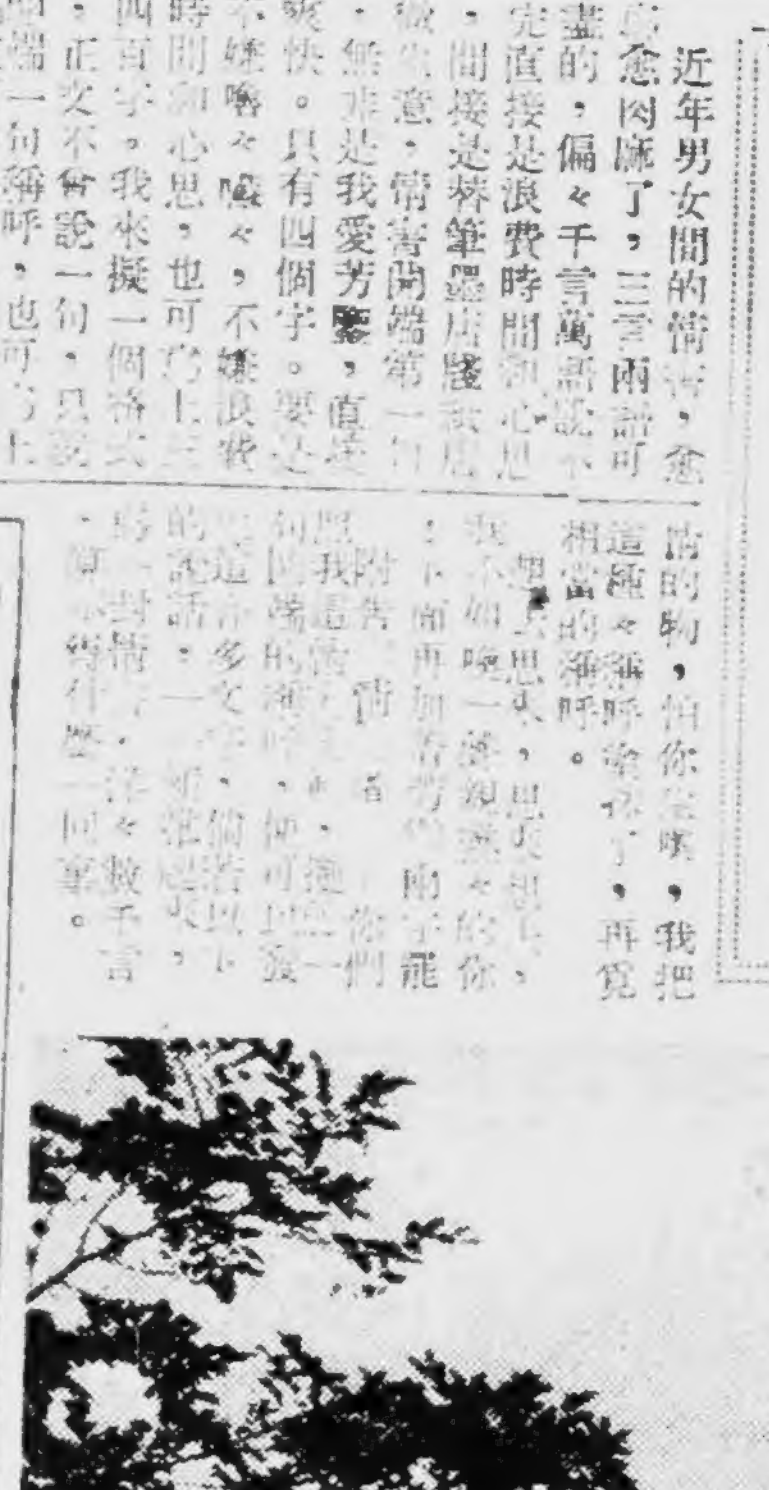 近年男女間的情書，愈
愈肉麻了，三言兩語可
盡的，偏々千言萬語說不
完直接是浪費時間和心思
，間接是替筆墨店牋紙店
做生意，情書開端第一句
，無非是我愛芳鑒，直達
爽快。只有四個字。要是
不嫌嚕々囌々，不嫌浪費
時間和心思，也可寫上三
四百字。我來擬一個格式
，正文不會說一句，只說
開端一句稱呼，也可寫上
的物，怕你生嗔，我把
這種々稱呼塗抹了，再覓
相當的稱呼。
思來，思去想去，
我不如喚一聲親愛々的你
！下面再加芳鑒兩字罷
附告 情 者 你們
照我這情，這一
句開端的稱呼，便可以發
這許多文字，倘若以下
的說話，一一鋪張起來，
寫一封情書，洋々數千言
，算不得什麼一回事。